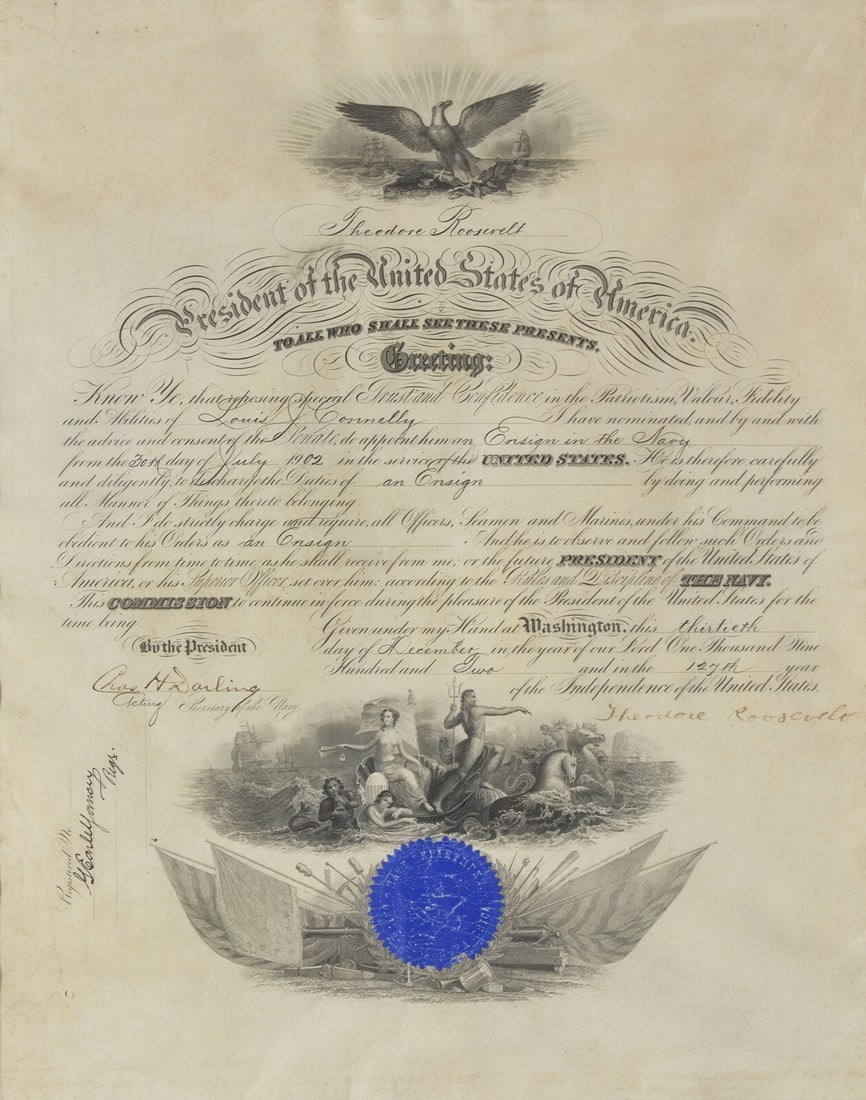 Theodore Roosevelt
President of the United States of America.
TO ALL WHO SHALL SEE THESE PRESENTS,
Greeting:
Know Ye, that reposing special Trust and Confidence in the Patriotism, Valour, Fidelity
and Abilities of Louis J Connelly I have nominated, and by and with
the advice and consent of the Senate, do appoint him an Ensign in the Navy
from the 30th day of July 1902 in the service of the UNITED STATES. He is therefore carefully
and diligently to discharge the Duties of an Ensign by doing and performing
all Manner of Things thereto belonging.
And I do strictly charge and require, all Officers, Seamen and Marines, under his Command to be
obedient to his Orders as an Ensign And he is to observe and follow such Orders and
Directions from time to time as he shall receive from me, or the future PRESIDENT of the United States of
America, or his Superior Officer set over him, according to the Rules and Discipline of THE NAVY.
This COMMISSION to continue in force during the pleasure of the President of the United States for the
time being.
Given under my Hand at Washington, this thirtieth
day of December in the year of our Lord One Thousand Nine
Hundred and Two and in the 127th year
of the Independence of the United States.
By the President
Chas H Darling
Acting Secretary of the Navy.
Theodore Roosevelt
Registered No.
Regr.